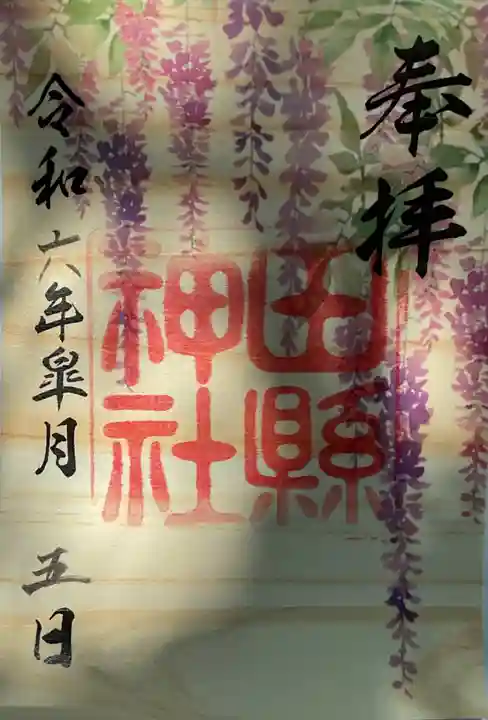 奉拝
田縣
神社
令和六年皐月 五日